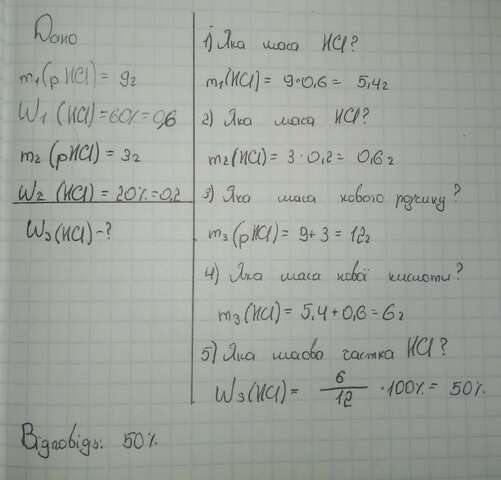 Дано
m₁(p HCl) = 9г
W₁ (HCl) = 60% = 0,6
m₂ (pHCl) = 3г
W₂ (HCl) = 20% = 0,2
W₃(HCl) - ?
1) Яка маса HCl?
m₁(HCl) = 9·0,6 = 5,4г
2) Яка маса HCl?
m₂(HCl) = 3·0,2 = 0,6г
3) Яка маса нового розчину?
m₃(pHCl) = 9+3 = 12г
4) Яка маса нової кислоти?
m₃(HCl) = 5,4+0,6 = 6г
5) Яка масова частка HCl?
W₃(HCl) = 6/12 ·100% = 50%
Відповідь: 50%